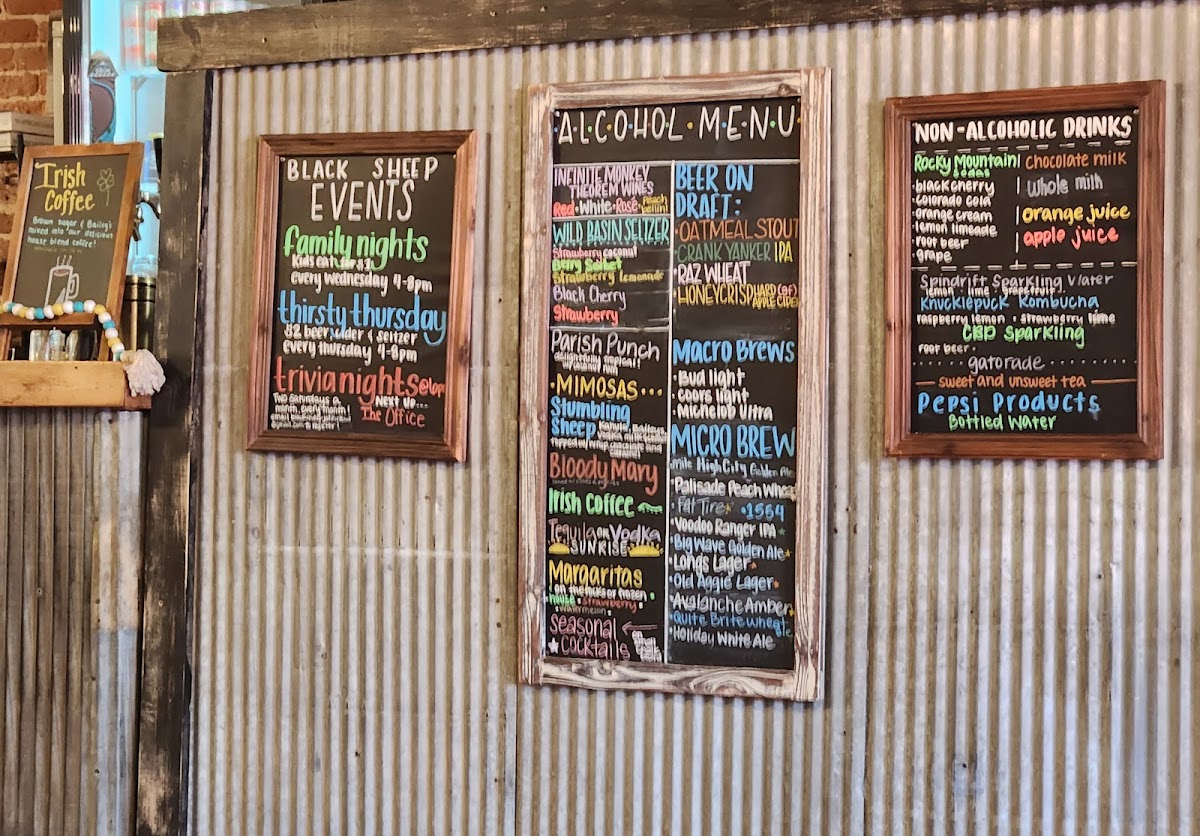 Irish
Coffee
Brown sugar & Bailey's
mixed into our delicious
house blend coffee!
BLACK SHEEP
EVENTS
family nights
kids eat for $1
every wednesday 4-8pm
thirsty thursday
$2 beer, cider & seltzer
every thursday 4-8pm
trivia nights
Two Saturdays a
month, every month!
NEXT UP...
The Office
ALCOHOL MENU
INFINITE MONKEY
THEOREM WINES
Red • White • Rosé • Peach
bellini
WILD BASIN SELTZER
Strawberry coconut
Berry Sorbet
Strawberry Lemonade
Black Cherry
Strawberry
Parish Punch
delightfully tropical!
MIMOSAS...
Stumbling
Sheep
caramel
Bloody Mary
Irish Coffee
Tequila OR Vodka
SUNRISE
Margaritas
on the rocks or frozen
House • Strawberry •
watermelon
seasonal
cocktails
BEER ON
DRAFT:
• OATMEAL STOUT
• CRANK YANKER IPA
• RAZ WHEAT
• HONEYCRISP HARD (GF)
APPLE CIDER
MACRO BREWS
• Bud light
• coors light
• Michelob Ultra
MICRO BREW
Mile High City Golden Ale
• Palisade Peach Wheat
• Fat Tire • 1554
• Voodoo Ranger IPA
• Big Wave Golden Ale
• Longs Lager
• Old Aggie Lager
• Avalanche Amber
• Quite Brite Wheat
Ale
• Holiday White Ale
NON-ALCOHOLIC DRINKS
Rocky Mountain
sodas
• black cherry
• colorado cola
• orange cream
• lemon limeade
• root beer
• grape
chocolate milk
whole milk
orange juice
apple juice
Spindrift Sparkling Water
lemon • lime • grapefruit
Knucklepuck Kombucha
raspberry lemon • strawberry lime
CBD Sparkling
root beer
gatorade
sweet and unsweet tea
Pepsi Products
Bottled Water